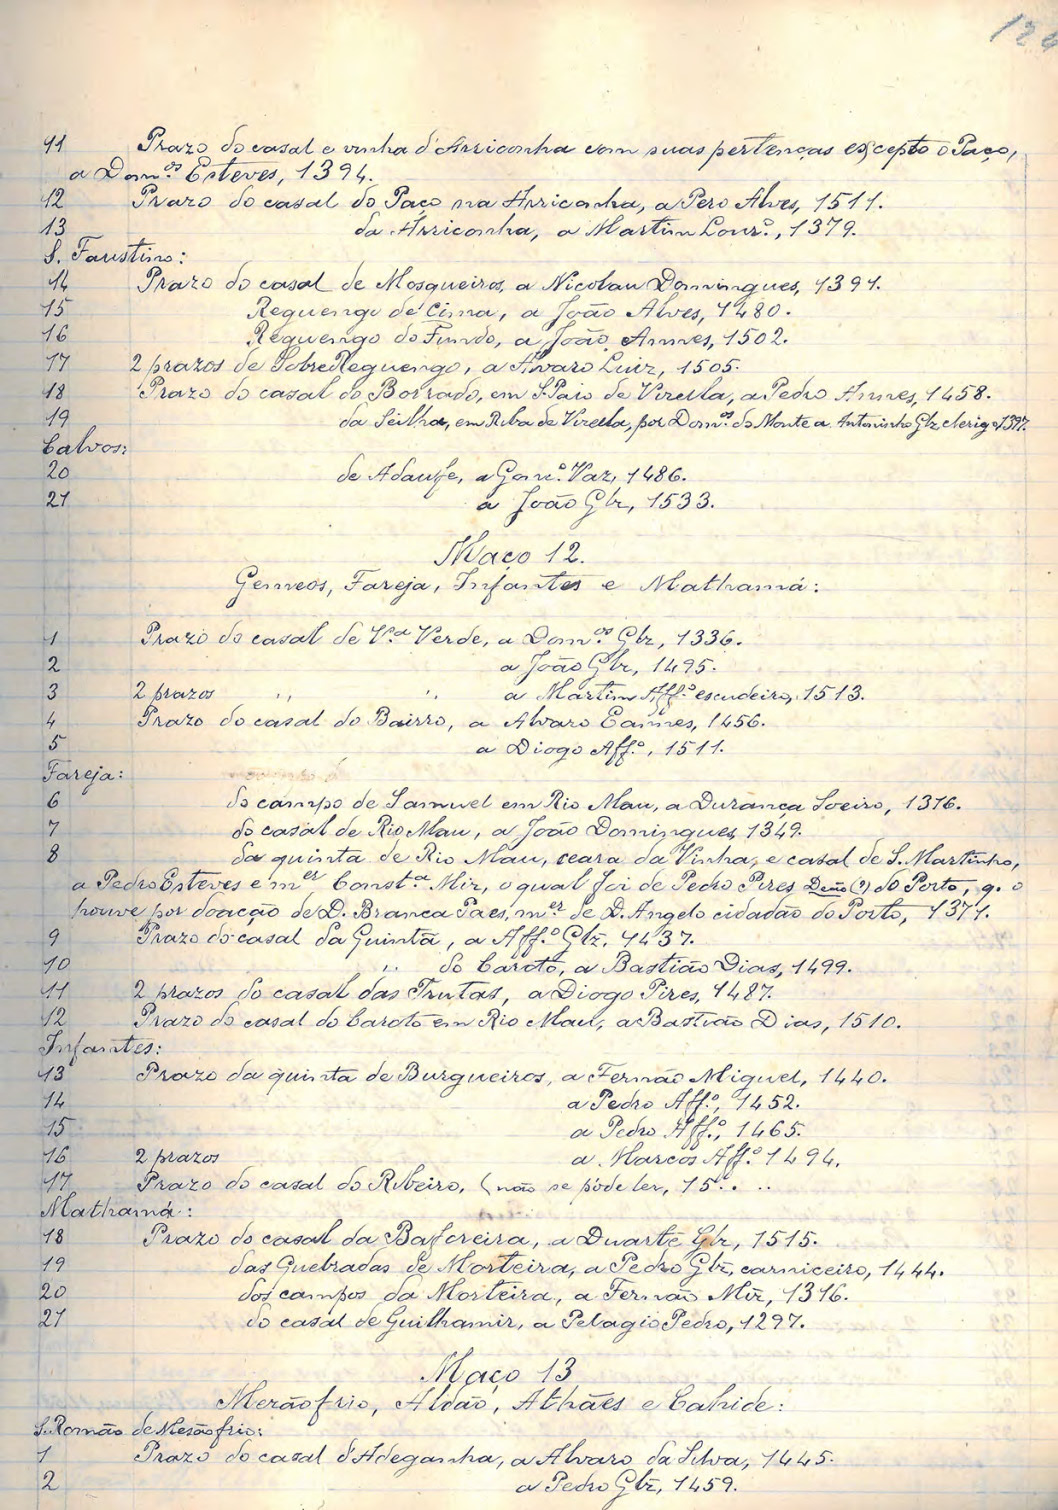 124
11 Prazo do casal e vinha d'Arriconha com suas pertenças excepto o Paço,
a Dom.os Esteves, 1394.
12 Prazo do casal do Paço na Arriconha, a Pero Alves, 1511.
13 da Arriconha, a Martim Lour.º, 1379.
S. Faustino:
14 Prazo do casal de Mosqueiros, a Nicolau Domingues, 1391.
15 Reguengo de Cima, a João Alves, 1480.
16 Reguengo do Fundo, a João Annes, 1502.
17 2 prazos de SobreReguengo, a Alvaro Luiz, 1505.
18 Prazo do casal do Borrado, em S. Paio de Vizella, a Pedro Annes, 1458.
19 da Seilha, em Riba de Vizella, por Dom.os do Monte a Antoninho Glz, clerigo 1397.
Calvos:
20 de Adaufe, a Gon.º Vaz, 1486.
21 a João Glz, 1533.
Maço 12.
Gemeos, Fareja, Infantes e Mathamá:
1 Prazo do casal de V.a Verde, a Dom.os Glz, 1336.
2 a João Glz, 1495.
3 2 prazos " " a Martim Aff.º escudeiro, 1513.
4 Prazo do casal do Bairro, a Alvaro Eannes, 1456.
5 a Diogo Aff.º, 1511.
Fareja:
6 do campo de Samuel em Rio Mau, a Durança Soeiro, 1316.
7 do casal de Rio Mau, a João Domingues, 1349.
8 da quinta de Rio Mau, ceara da Vinha, e casal de S. Martinho,
a Pedro Esteves e m.er Const.a Miz, o qual foi de Pedro Pires Deão (?) do Porto, q. o
houve por doação de D. Branca Paes, m.er de D. Angelo cidadão do Porto, 1371.
9 Prazo do casal da Quintã, a Aff.º Glz, 1437.
10 " do Carôto, a Bastião Dias, 1499.
11 2 prazos do casal das Trutas, a Diogo Pires, 1487.
12 Prazo do casal do Carôto em Rio Mau, a Bastião Dias, 1510.
Infantes:
13 Prazo da quinta de Burgueiros, a Fernão Miguel, 1440.
14 a Pedro Aff.º, 1452.
15 a Pedro Aff.º, 1465.
16 2 prazos a Marcos Aff.º 1494.
17 Prazo do casal do Ribeiro, (não se póde ler, 15.. ..
Mathamá:
18 Prazo do casal da Baforeira, a Duarte Glz, 1515.
19 das Quebradas de Morteira, a Pedro Glz, carniceiro, 1444.
20 dos campos da Morteira, a Fernão Miz, 1316.
21 do casal de Guilhamir, a Pelagio Pedro, 1297.
Maço 13
Mezãofrio, Aldão, Athães e Cahide:
S. Romão de Mesãofrio:
1 Prazo do casal d'Adeganha, a Alvaro da Silva, 1445.
2 a Pedro Glz, 1459.